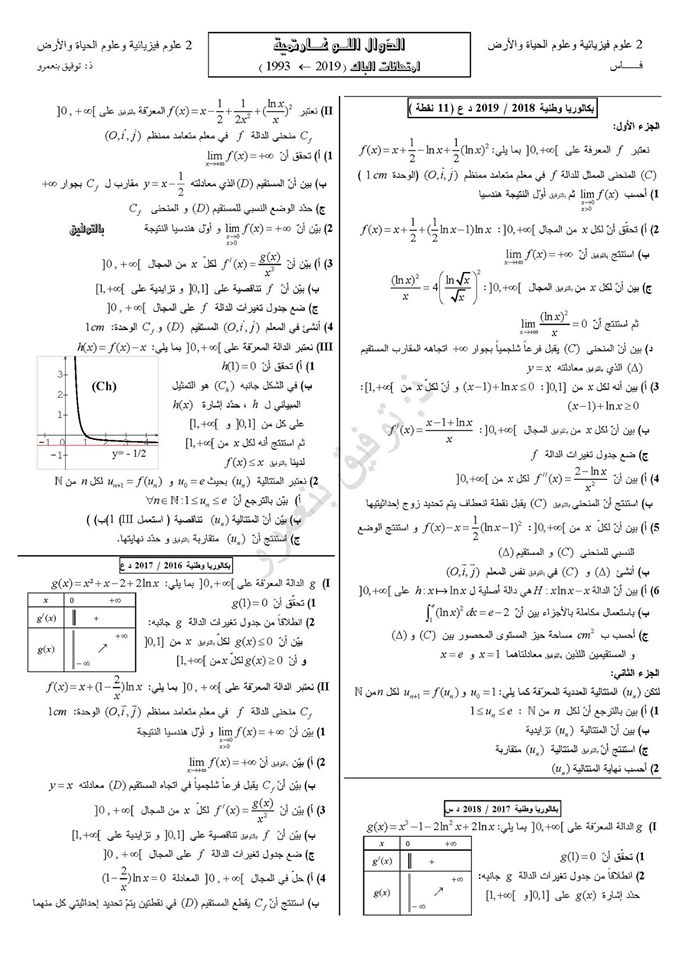 2 علوم فيزيائية وعلوم الحياة والأرض
الدوال اللوغارتمية
2 علوم فيزيائية وعلوم الحياة والأرض
فـــاس
امتحانات الباك ( 2019 ← 1993 )
ذ: توفيق بنعمرو
بكالوريا وطنية 2018 / 2019 د ع (11 نقطة )
الجزء الأول:
نعتبر f المعرفة على ]0,+∞[ بما يلي: f(x)=x+1/2-lnx+1/2(lnx)²
(C) المنحنى الممثل للدالة f في معلم متعامد ممنظم (O,i,j) (الوحدة 1cm )
1) أحسب lim f(x) x→0 x>0 ثم أول النتيجة هندسيا
2) أ) تحقق أن لكل x من المجال ]0,+∞[: f(x)=x+1/2+(1/2 lnx-1)lnx
ب) استنتج أن lim f(x)=+∞ x→+∞
ج) بين أن لكل x من المجال ]0,+∞[: (lnx)²/x=4(ln√x/√x)²
ثم استنتج أن lim (lnx)²/x=0 x→+∞
د) بين أن المنحنى (C) يقبل فرعا شلجميا بجوار +∞ اتجاهه المقارب المستقيم
(Δ) الذي معادلته y=x
3) أ) بين أنه لكل x من ]0,1]: (x-1)+lnx≤0 و أن لكل x من [1,+∞[:
(x-1)+lnx≥0
ب) بين أن لكل x من المجال ]0,+∞[: f'(x)=(x-1+lnx)/x
ج) ضع جدول تغيرات الدالة f
4) أ) بين أن f''(x)=(2-lnx)/x² لكل x من ]0,+∞[
ب) استنتج أن المنحنى (C) يقبل نقطة انعطاف يتم تحديد زوج إحداثيتيها
5) أ) بين أن لكل x من ]0,+∞[: f(x)-x=1/2(lnx-1)² و استنتج الوضع
النسبي للمنحنى (C) و المستقيم (Δ)
ب) أنشئ (Δ) و (C) في نفس المعلم (O,i,j)
6) أ) بين أن الدالة H:x↦xlnx-x هي دالة أصلية ل h:x↦lnx على ]0,+∞[
ب) باستعمال مكاملة بالأجزاء بين أن ∫₁ᵉ(lnx)²dx=e-2
ج) أحسب ب cm² مساحة حيز المستوى المحصور بين (C) و (Δ)
و المستقيمين اللذين معادلتاهما x=1 و x=e
الجزء الثاني:
لتكن (uₙ) المتتالية العددية المعرفة كما يلي: u₀=1 و uₙ₊₁=f(uₙ) لكل n من ℕ
1) أ) بين بالترجع أن لكل n من ℕ : 1≤uₙ≤e
ب) بين أن المتتالية (uₙ) تزايدية
ج) استنتج أن المتتالية (uₙ) متقاربة
2) أحسب نهاية المتتالية (uₙ)
بكالوريا وطنية 2017 / 2018 د س
I) g الدالة المعرفة على ]0,+∞[ بما يلي: g(x)=x³-1-2ln²x+2lnx
1) تحقق أن g(1)=0
2) انطلاقا من جدول تغيرات الدالة g جانبه:
حدد إشارة g(x) على ]0,1] و [1,+∞[
x 0 +∞
g'(x) +
g(x) -∞ +∞
II) نعتبر f(x)=x-1/2+1/(2x²)+(lnx/x)² المعرفة على ]0,+∞[
Cf منحنى الدالة f في معلم متعامد ممنظم (O,i,j)
1) أ) تحقق أن lim f(x)=+∞ x→+∞
ب) بين أن المستقيم (D) الذي معادلته y=x-1/2 مقارب ل Cf بجوار +∞
ج) حدد الوضع النسبي للمستقيم (D) و المنحنى Cf
2) بين أن lim f(x)=+∞ x→0 x>0 و أول هندسيا النتيجة
بالتوفيق
3) أ) بين أن f'(x)=g(x)/x³ لكل x من المجال ]0,+∞[
ب) بين أن f تناقصية على ]0,1] و تزايدية على [1,+∞[
ج) ضع جدول تغيرات الدالة f على المجال ]0,+∞[
4) أنشئ في المعلم (O,i,j) المستقيم (D) و Cf الوحدة: 1cm
III) نعتبر الدالة المعرفة على ]0,+∞[ بما يلي: h(x)=f(x)-x
1) أ) تحقق أن h(1)=0
ب) في الشكل جانبه (Ch) هو التمثيل
المبياني ل h ، حدد إشارة h(x)
على كل من ]0,1] و [1,+∞[
ثم استنتج أنه لكل x من [1,+∞[
لدينا f(x)≤x
(Ch)
3
2
1
-1 0 1 2 3 4
-1
y= - 1/2
2) نعتبر المتتالية (uₙ) بحيث u₀=e و uₙ₊₁=f(uₙ) لكل n من ℕ
أ) بين بالترجع أن ∀n∈ℕ:1≤uₙ≤e
ب) بين أن المتتالية (uₙ) تناقصية ( استعمل III) 1)ب) )
ج) استنتج أن (uₙ) متقاربة و حدد نهايتها.
بكالوريا وطنية 2016 / 2017 د ع
I) g الدالة المعرفة على ]0,+∞[ بما يلي: g(x)=x²+x-2+2lnx
1) تحقق أن g(1)=0
2) انطلاقا من جدول تغيرات الدالة g جانبه:
بين أن g(x)≤0 لكل x من ]0,1]
و أن g(x)≥0 لكل x من [1,+∞[
x 0 +∞
g'(x) +
g(x) -∞ +∞
II) نعتبر الدالة المعرفة على ]0,+∞[ بما يلي: f(x)=x+(1-2/x)lnx
Cf منحنى الدالة f في معلم متعامد ممنظم (O,i,j) الوحدة: 1cm
1) بين أن lim f(x)=+∞ x→0 x>0 و أول هندسيا النتيجة
2) أ) بين أن lim f(x)=+∞ x→+∞
ب) بين أن Cf يقبل فرعا شلجميا في اتجاه المستقيم (D) معادلته y=x
3) أ) بين أن f'(x)=g(x)/x² لكل x من المجال ]0,+∞[
ب) بين أن f تناقصية على ]0,1] و تزايدية على [1,+∞[
ج) ضع جدول تغيرات الدالة f على المجال ]0,+∞[
4) أ) حل في المجال ]0,+∞[ المعادلة (1-2/x)lnx=0
ب) استنتج أن Cf يقطع المستقيم (D) في نقطتين يتم تحديد إحداثيتي كل منهما
ذ: توفيق بنعمرو